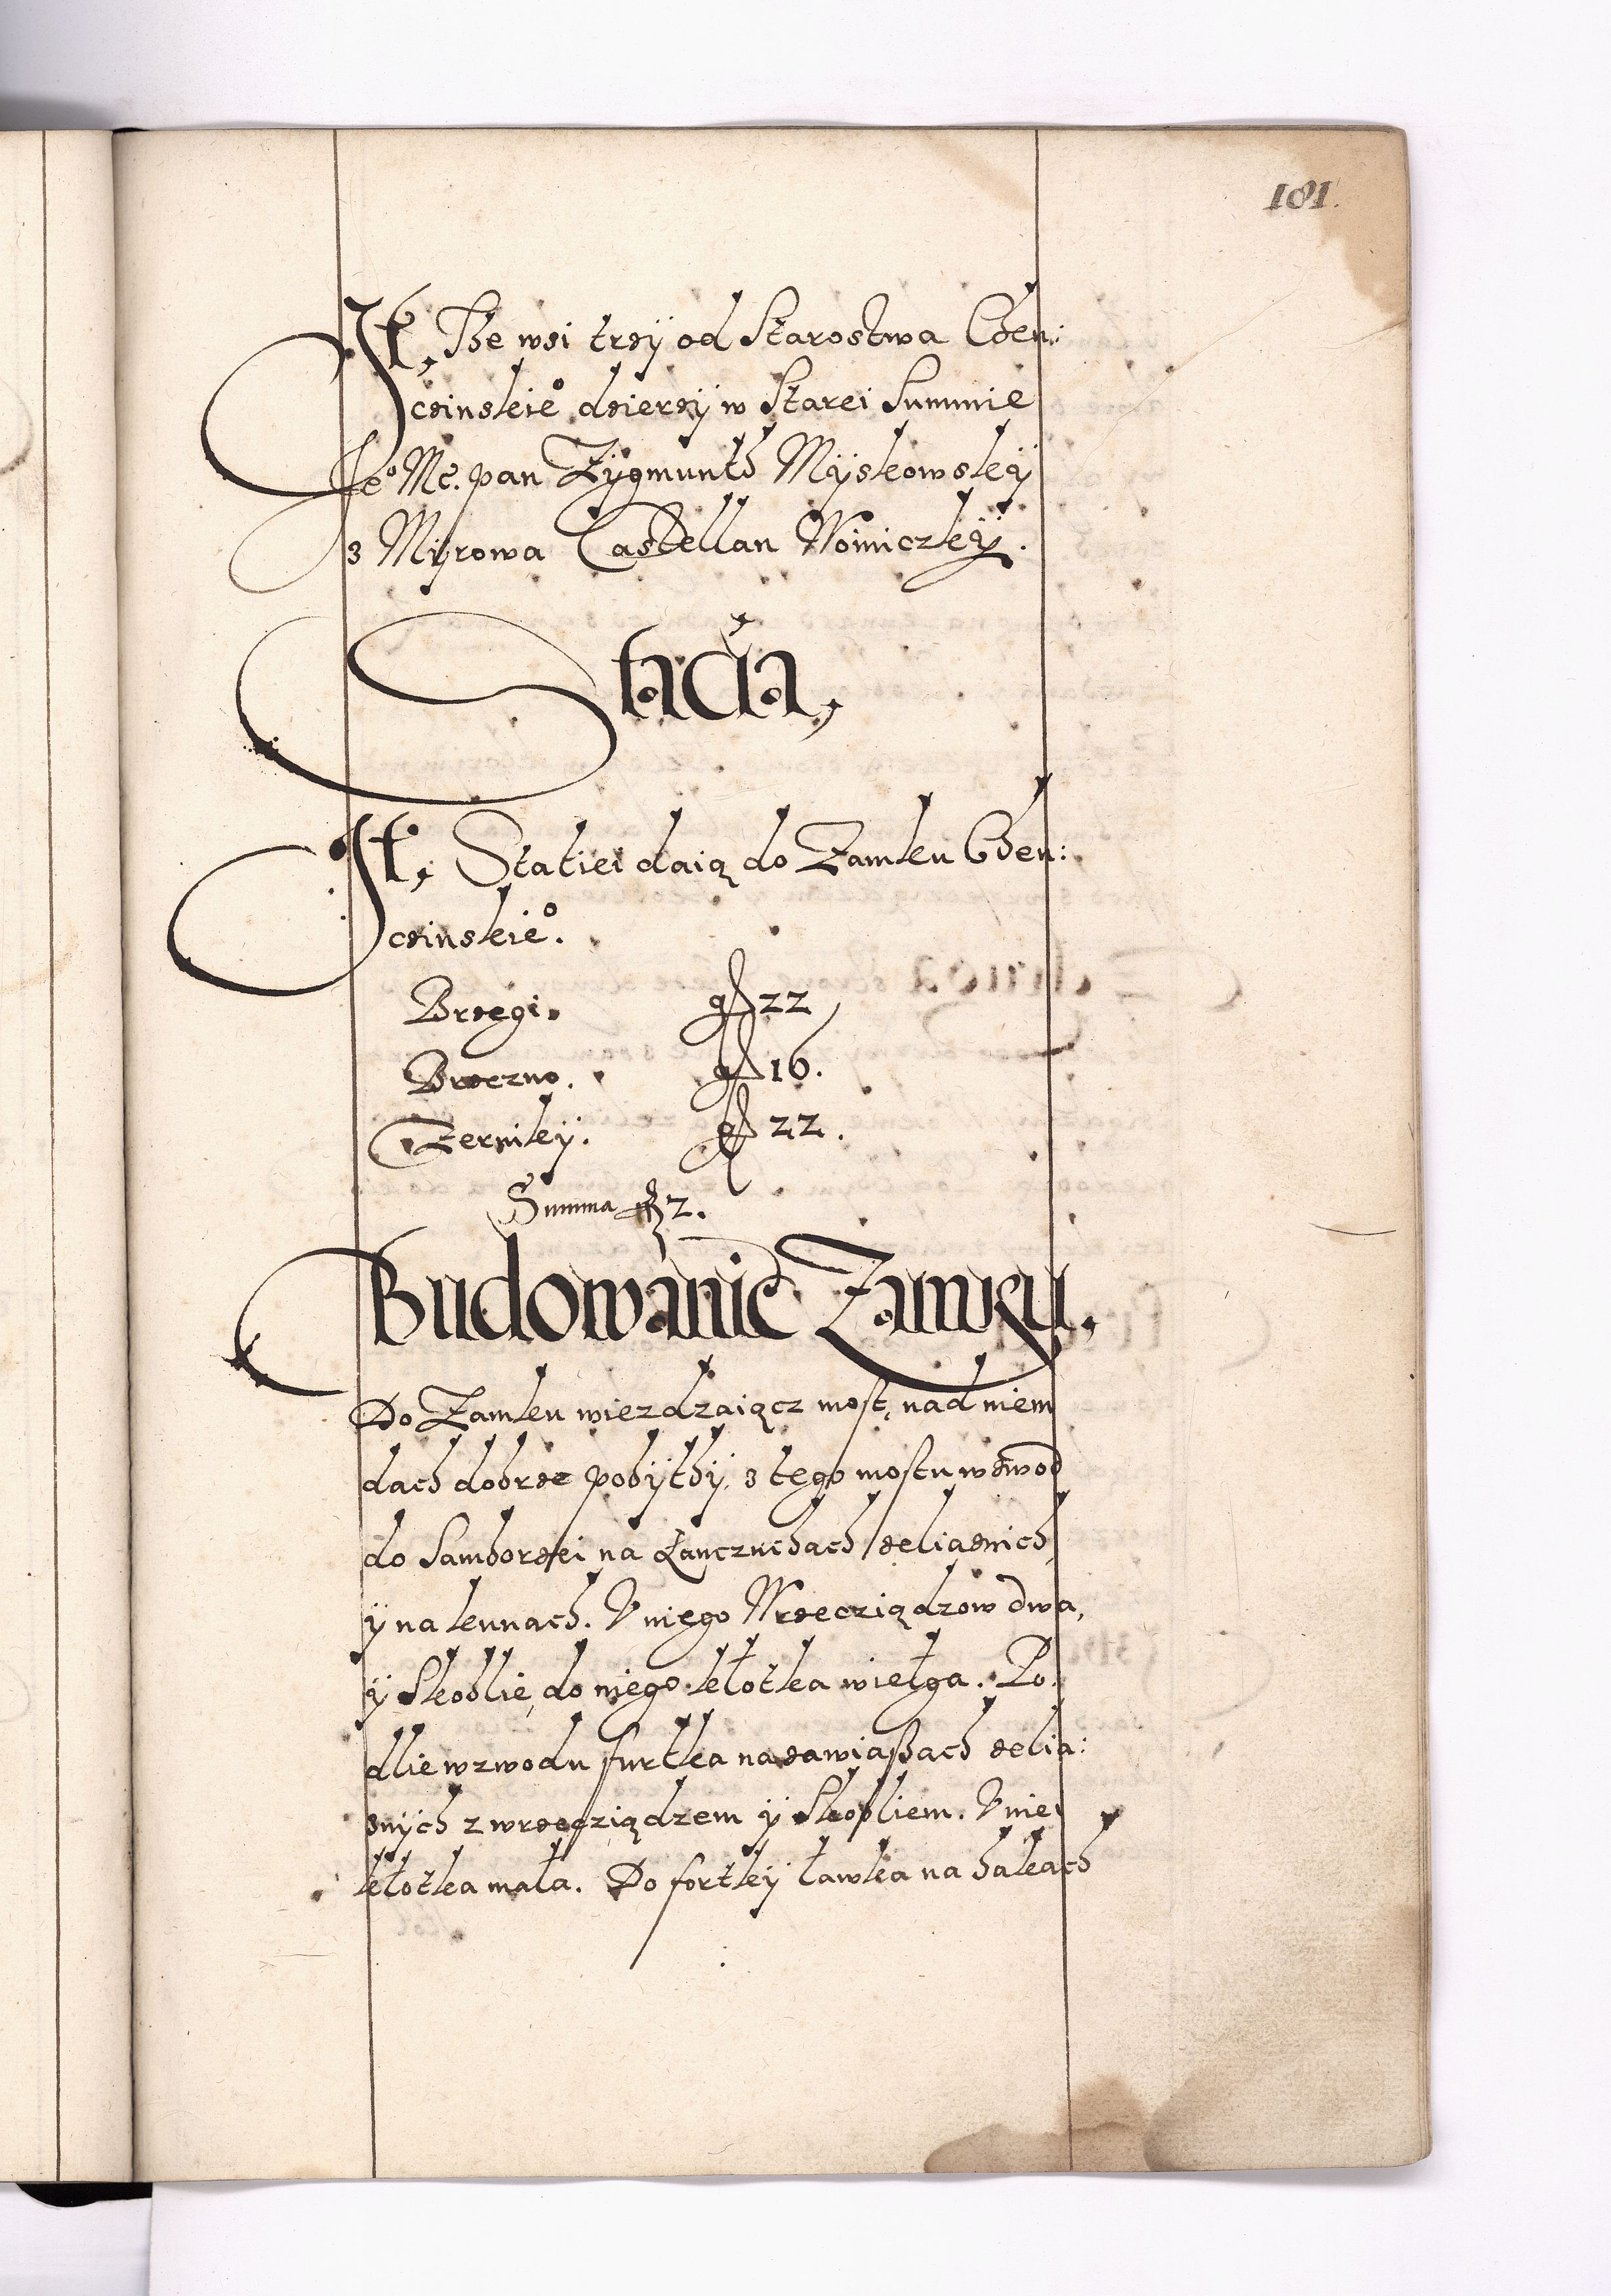 181.
It, The wsi trzÿ od Starostwa Chen:
czinskie° dzierzÿ w Starei Summie
Je° Mc. pan Zÿgmunth Mÿskowskÿ
z Mÿrowa Castellan Woiniczkÿ.
Stacia,
It, Statiei daią do Zamku Chen:
czinskie°.
Brzegi. g 22
Brzezno. g 16.
Czernikÿ. g 22.
Summa 2.
Budowanie Zamku.
Do Zamku wiezdzaiącz most, nad niem
dach dobrze pobÿthÿ, z tego mostu wzwod
do Samborzei na Łanczuchach zeliaznich,
ÿ na kunach. V niego Wrzecziądzow dwa,
ÿ Skoblie, do niego kłotka wielga. Po
dlie wzwodu furtka na zawiaßach zelia:
znÿch z wrzecziądzem ÿ Skobliem. V niei
kłotka mała. Do fortkÿ ławka na hakach